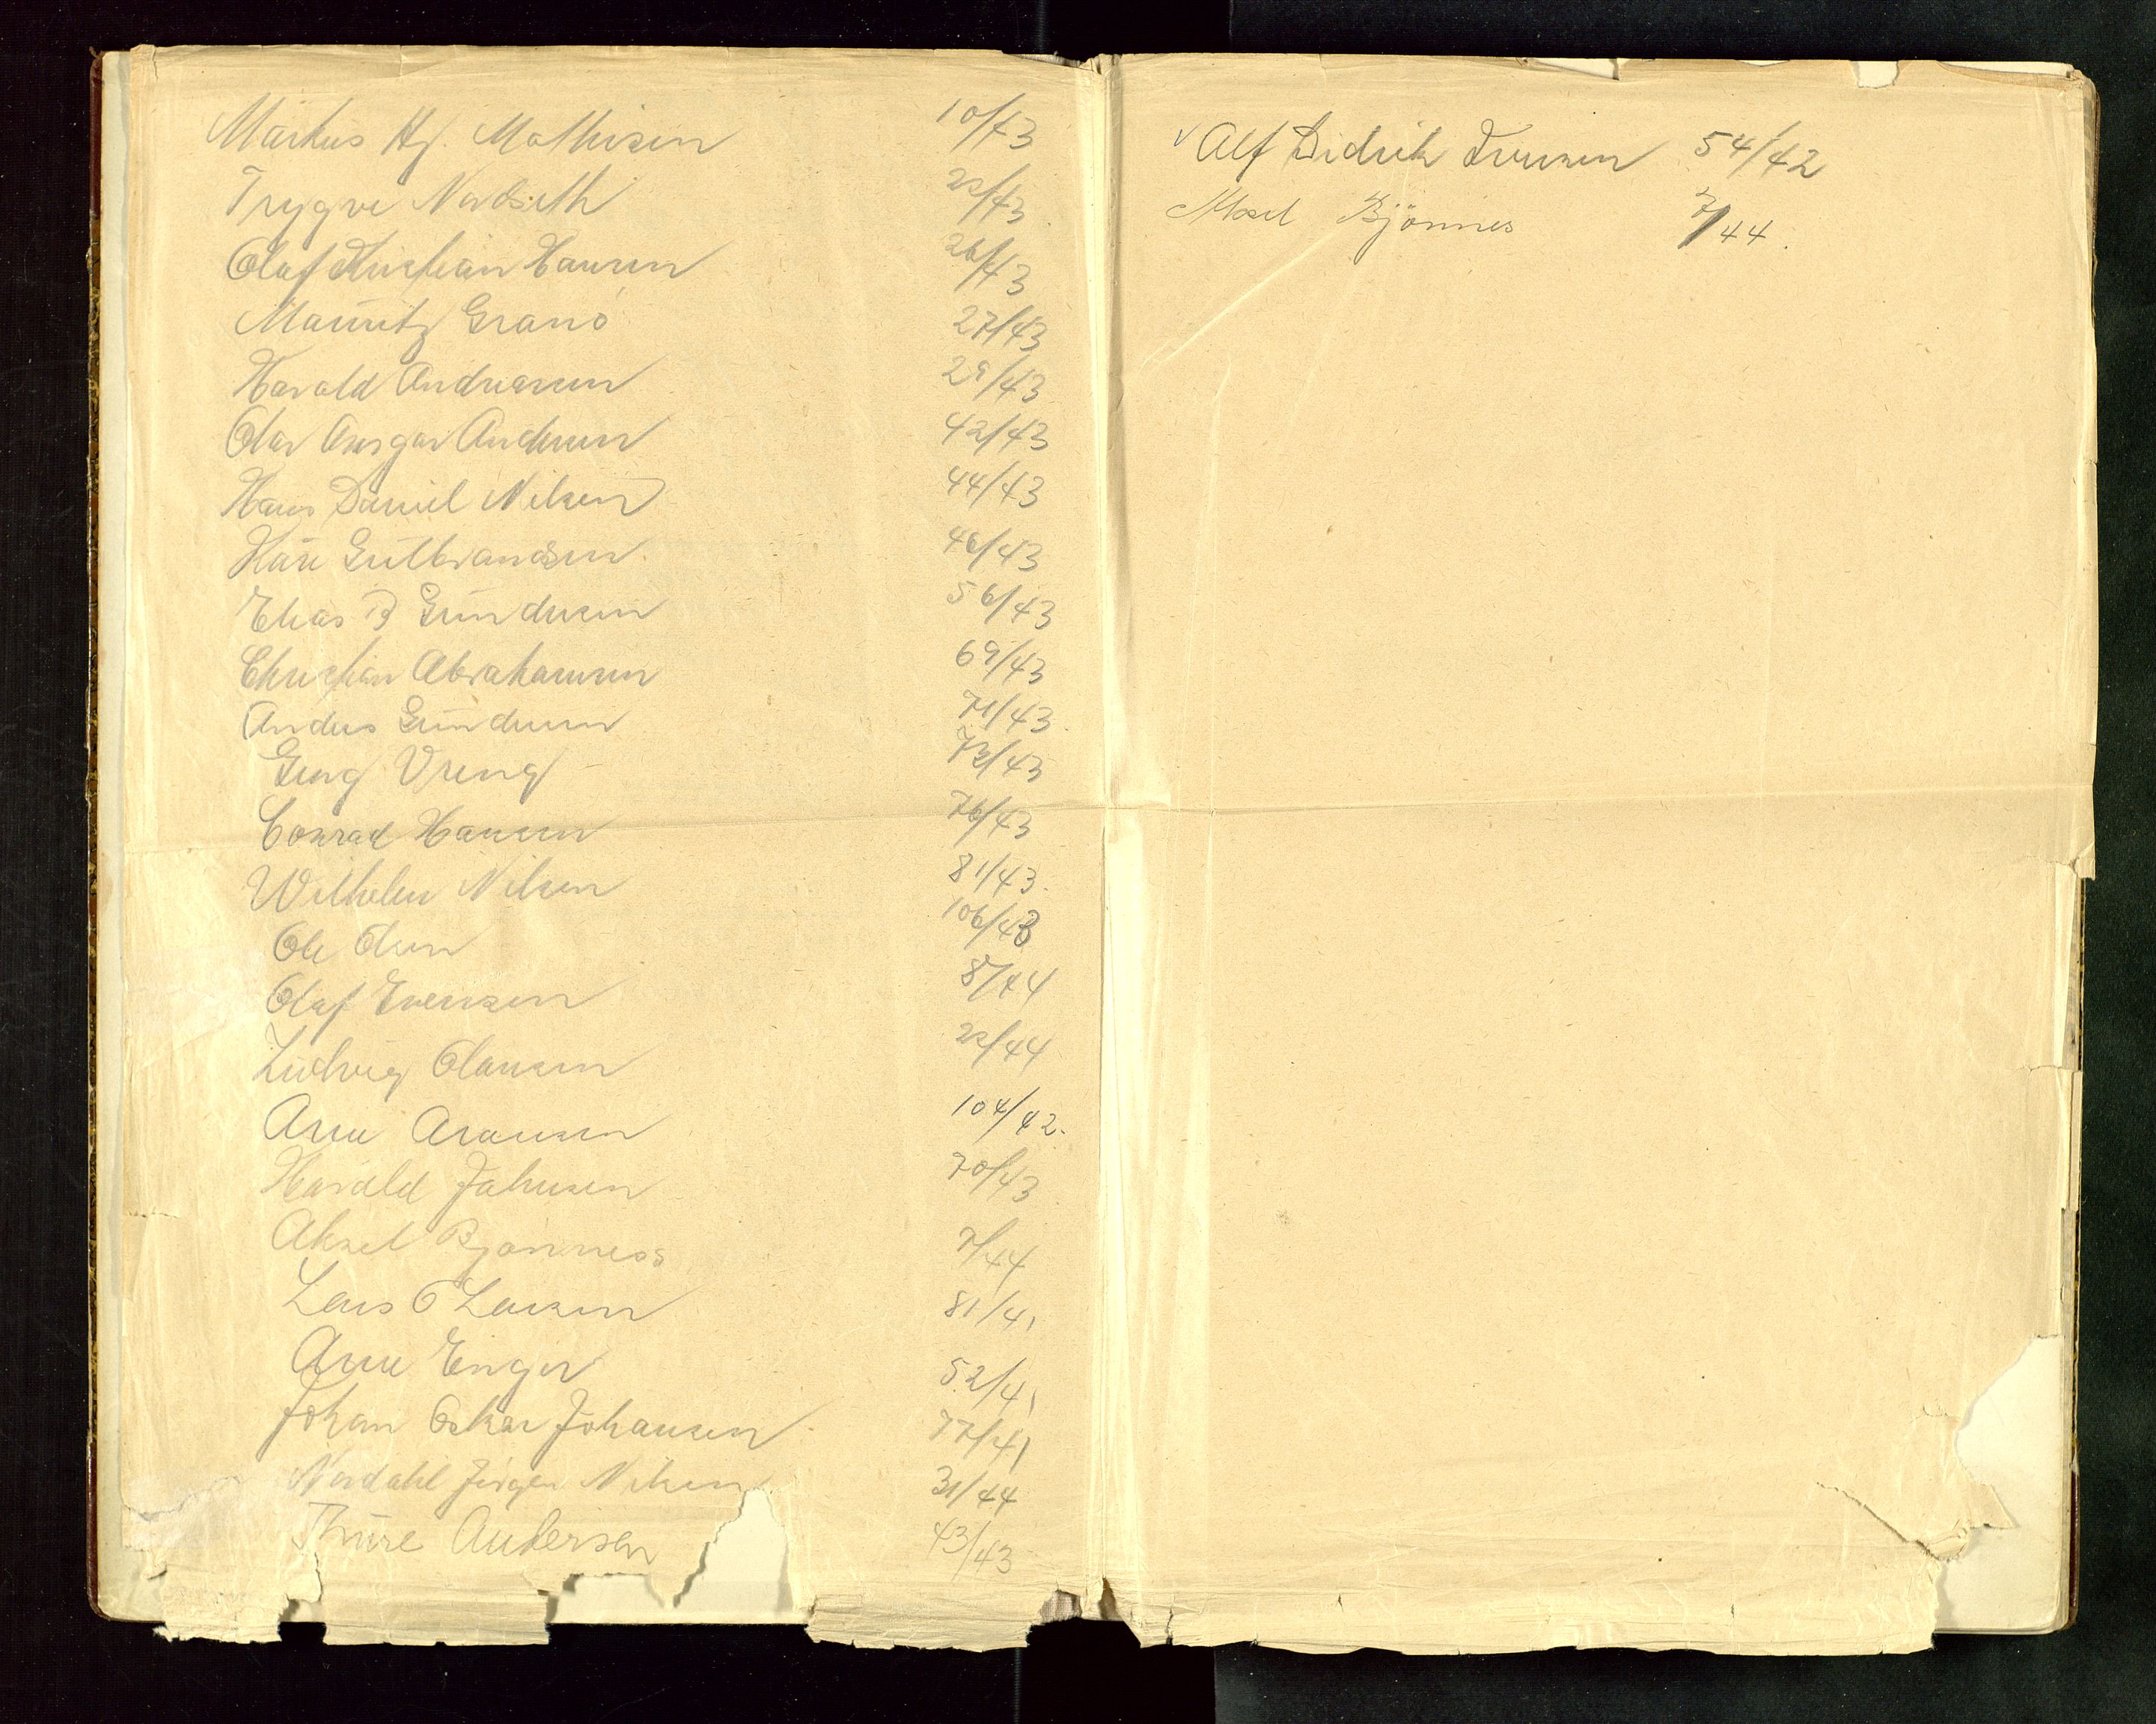 Markus Hj. Mathisen 10/43
Trygve Nordseth 22/43
Olaf Kristian Hansen 26/43
Mauritz Granö 27/43
Harald Andreasen 29/43
Olav Ansgar Andersen 42/43
Hans Daniel Nilsen 44/43
Kåre Gulbrandsen 46/43
Elias B Gundersen 56/43
Christian Abrahamsen 69/43
Anders Gundersen 71/43
Georg Vreng 73/43
Conrad Hansen 76/43
Wilhelm Nilsen 81/43
Ole Olsen 106/43
Olaf Evensen 8/44
Ludvig Clausen 22/44
Arne Aronsen 104/42.
Harald Jahnsen 70/43
Aksel Bjonness 7/44
Lars O Larsen 81/41
Arne Enger 52/41
Johan Oskar Johansen 77/41
Nordahl Jörgen Nilsen 31/44
Thure Andersen 43/43
√ Alf Didrik Iversen 54/42
Aksel Bjönnes 7/44.